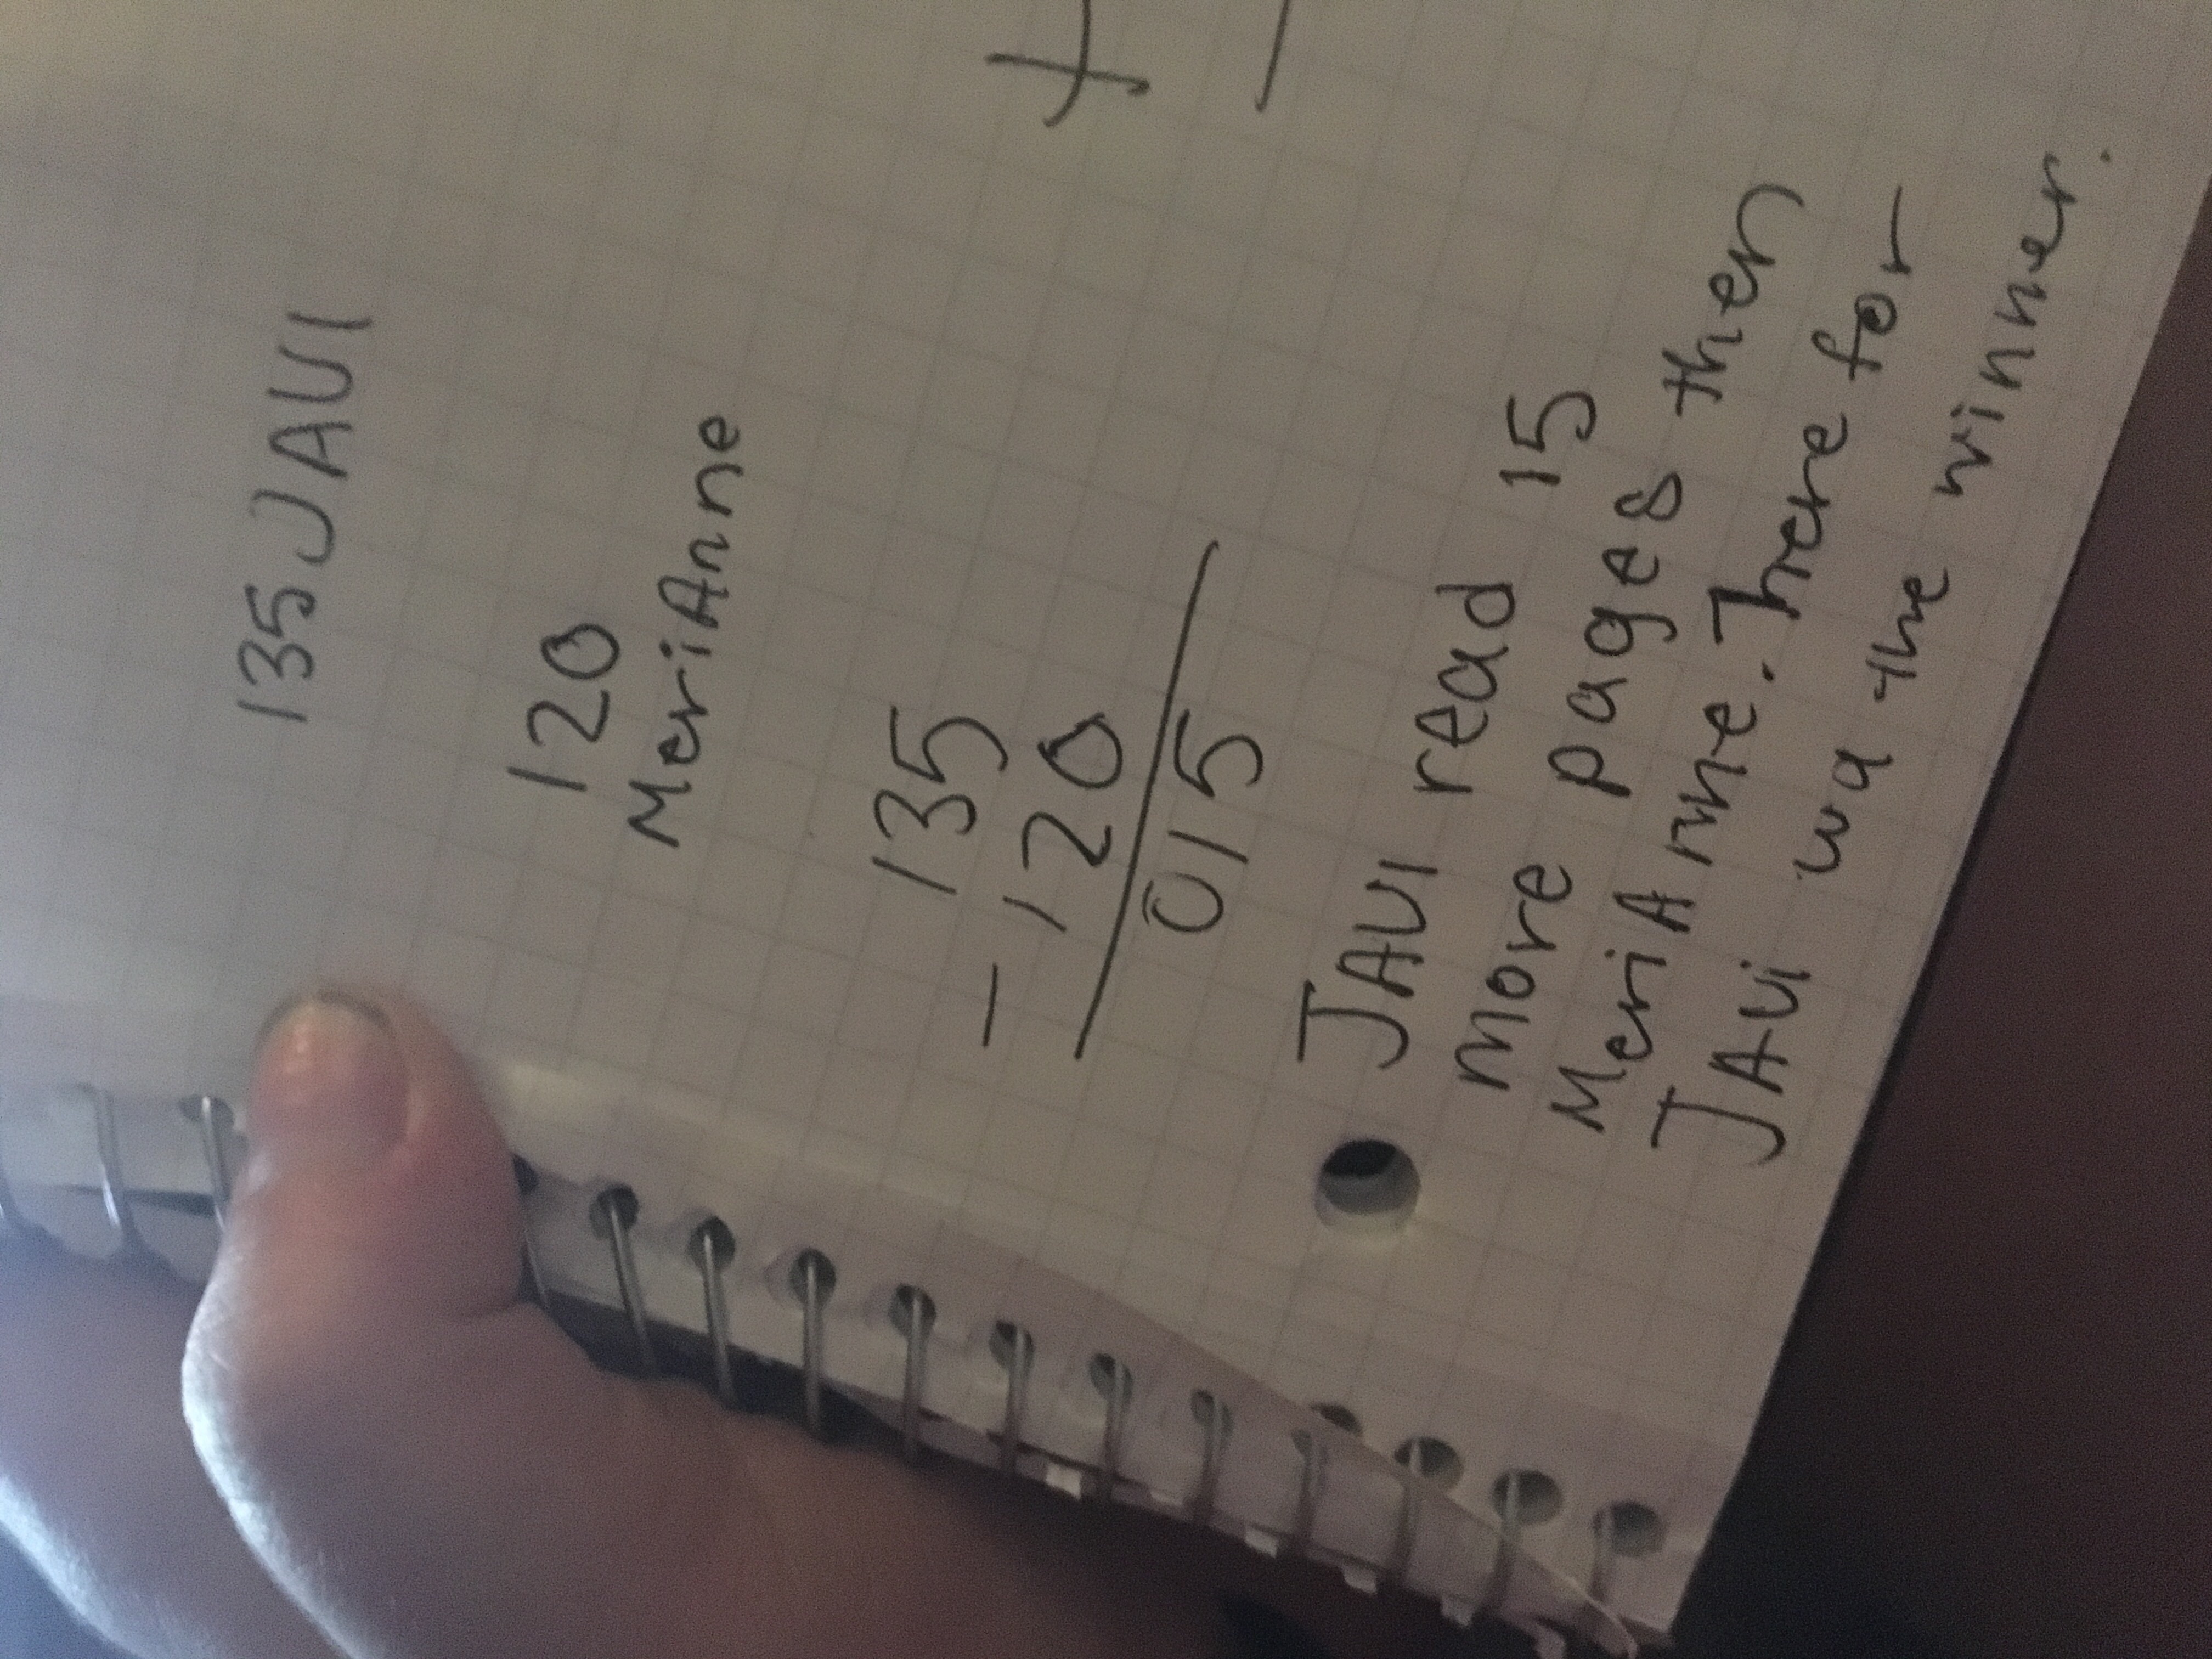 135 JAVI
120
MeriAnne
135
- 120
015
JAVI read 15
more pages then
MeriAnne. There for
JAVi wa the winner.
+